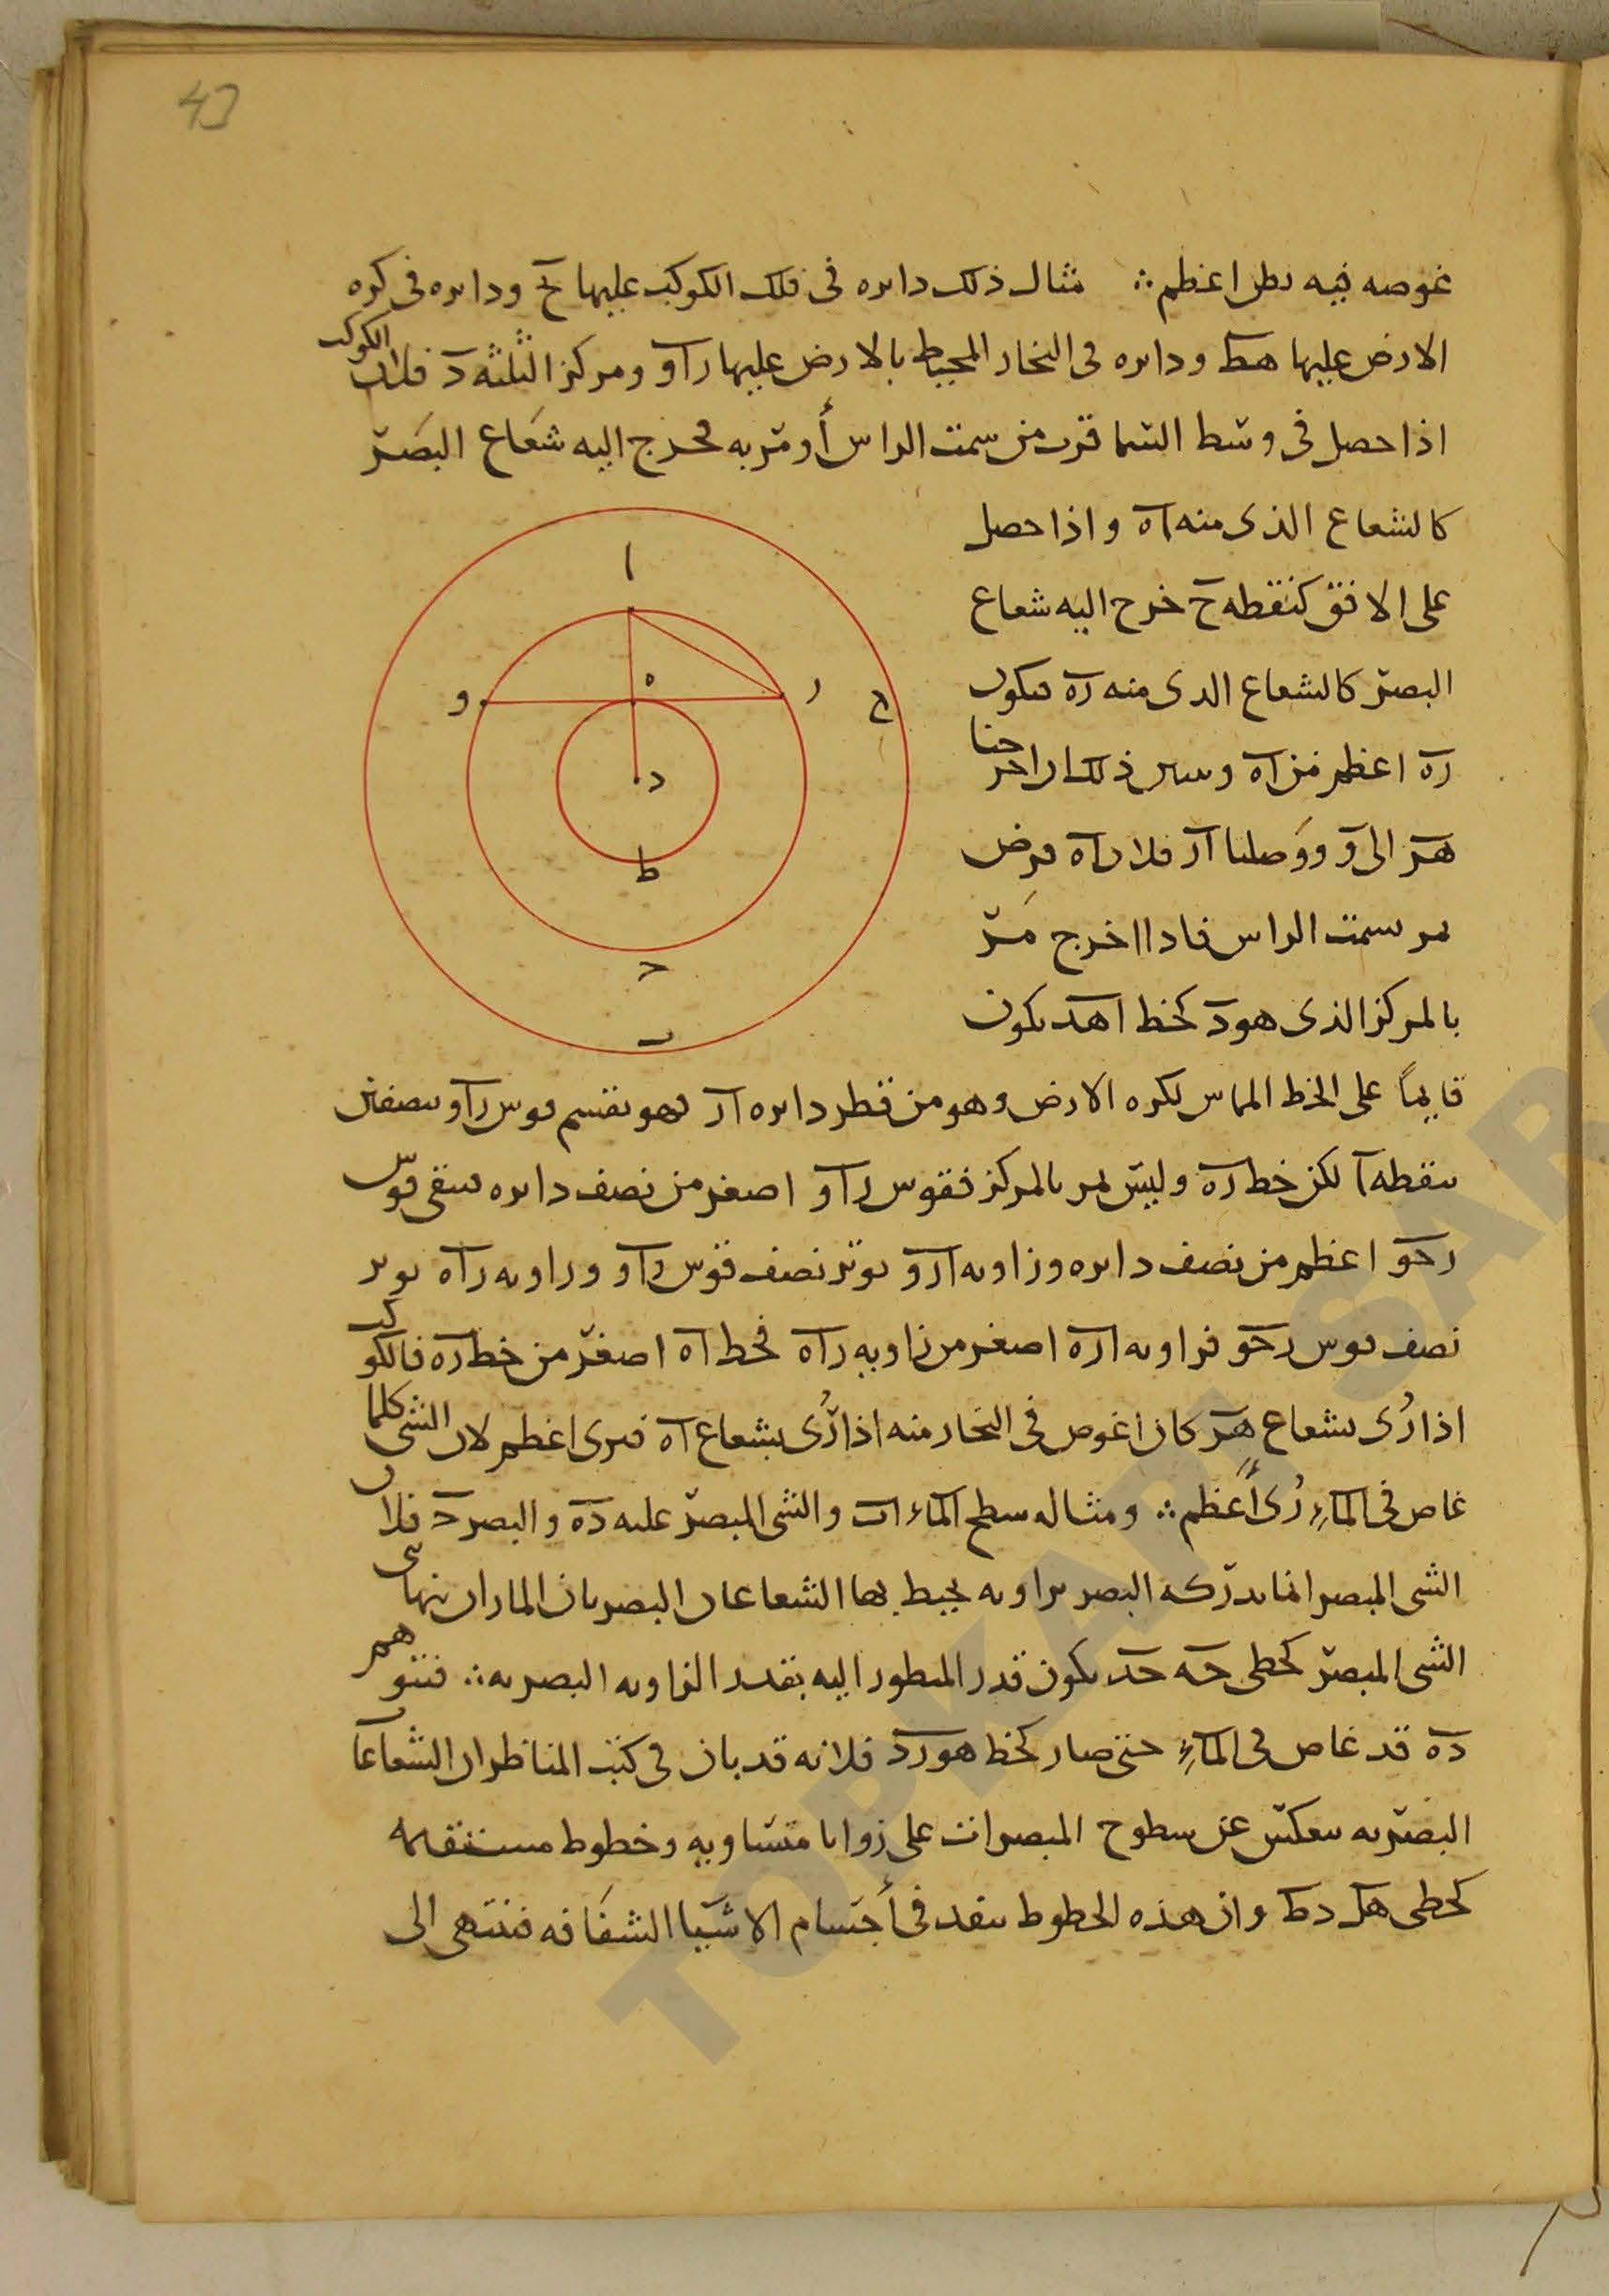 43
غوصه فيه يظن اعظم ∴ مثال ذلك دايره فى فلك الكوكب عليها ح ودايره فى كره
الارض عليها هط ودايره فى البخار المحيط بالارض عليها راو ومركز الثلثه د فلان الكوكب
اذا حصل فى وسط السما قرب من سمت الراس أو مر به فخرج اليه شعاع البصر
كالشعاع الذى منه اه واذا حصل
على الافق كنقطه ح خرج اليه شعاع
البصر كالشعاع الدى منه ره فيكون
ره اعظم من اه وسرهن ذلك ان اخرجنا
هر الى و ووصلنا ار فلان اه فرض
يمر بسمت الراس فاذا اخرج مر
بالمركز الذى هو د كخط اهد يكون
قايما على الخط المماس لكره الارض وهو من قطر دايره ار فهو يقسم قوس راو بنصفين
بنقطه ا لكن خط ره وليس يمر بالمركز فقوس راو اصغر من نصف دايره فتبقى قوس
رحو اعظم من نصف دايره وزاويه ارو يوتر نصف قوس راو وزاويه راه يوتر
نصف قوس رحو فزاويه اره اصغر من زاويه راه فخط اه اصغر من خط ره فالكوكب
اذا رُى بشعاع هر كان اغوص فى البخار منه اذا رُى بشعاع اه فيرى اعظم لان الشى كلما
غاص فى الماء رُى أعظم ∴ ومثاله سطح الماء اب والشى المبصر عليه ده والبصر ح فلان
الشى المبصر انما يدركه البصر بزاويه يحيط بها الشعاعان البصريان الماران بنهايتى
الشى المبصر كخطى حه حد يكون قدر المنظور اليه بقدر الزاويه البصريه ∴ فنتوهم
ده قد غاص فى الماء حتى صار كخط هورد فلانه قد بان فى كتب المناظر ان الشعاعا
البصريه تنعكس عن سطوح المبصرات على زوايا متساويه وخطوط مستقيمه
كخطى هك دط وان هذه الخطوط تنفذ فى أجسام الاشيا الشفافه فتنتهى الى
ا
ه
و
ر
ح
د
ط
ح
ب
TOPKAPI SARA